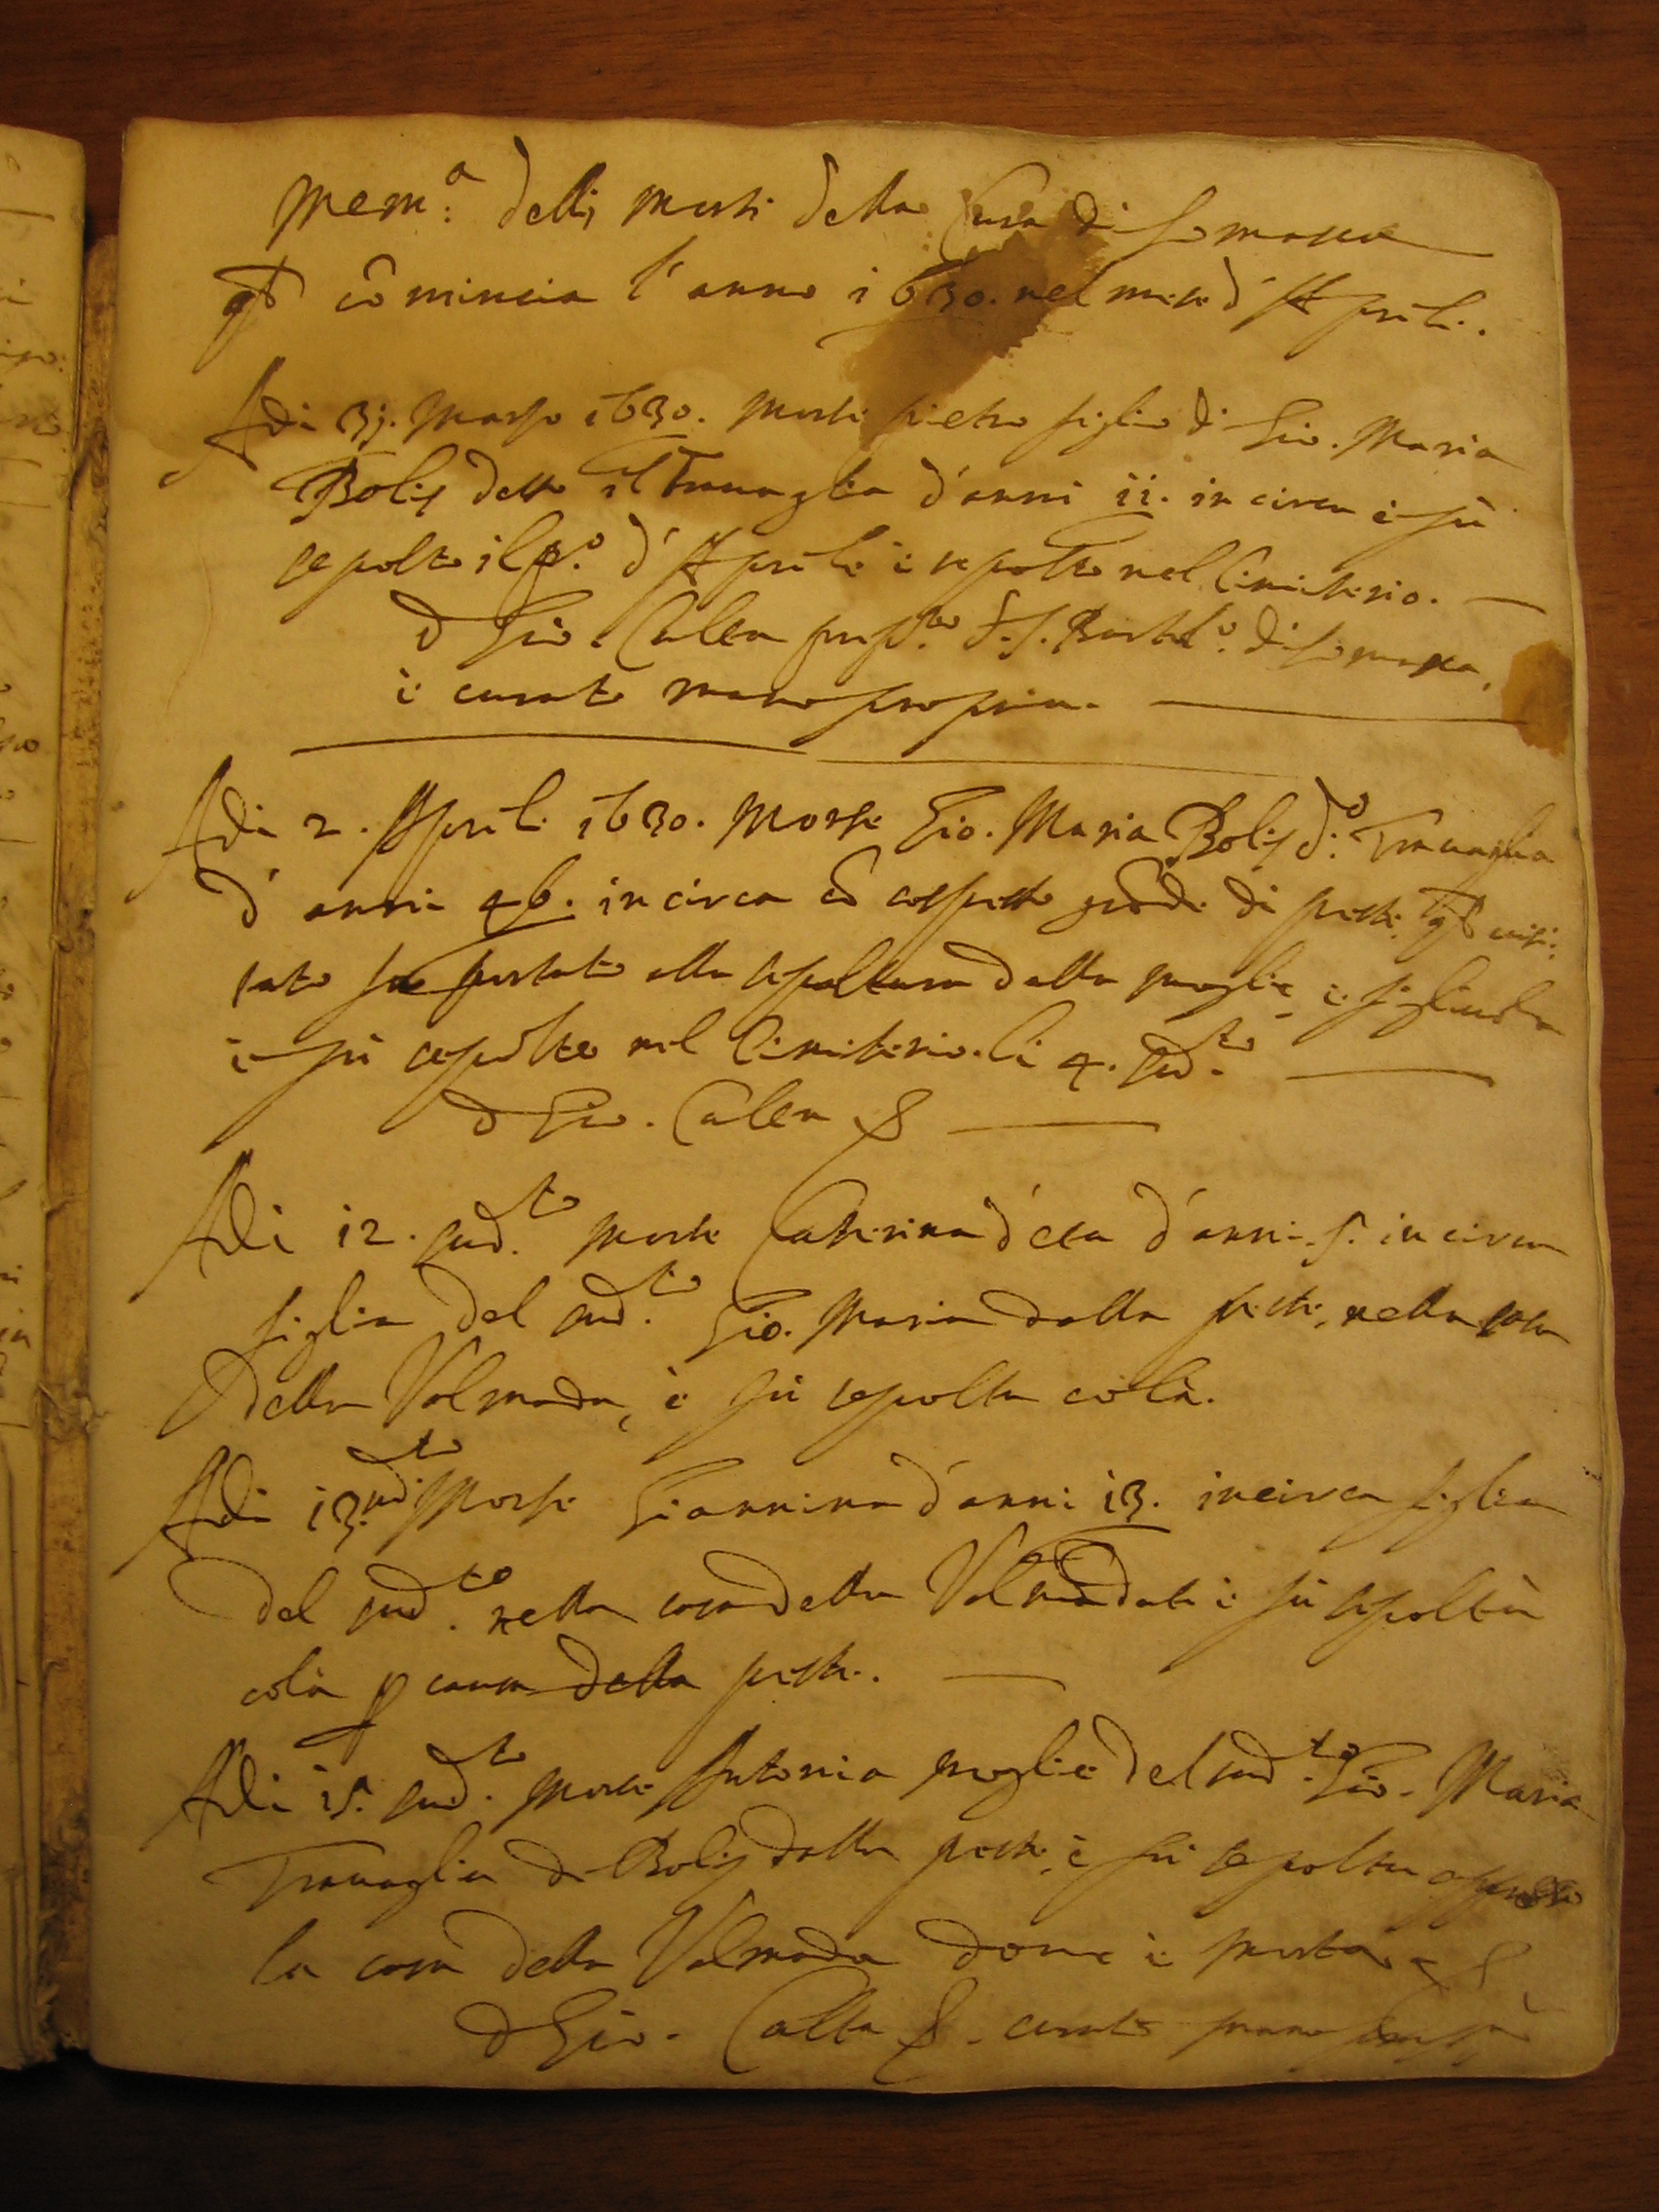 Mem.a delli morti della Cura di Somasca
qual comincia l'anno 1630. nel mese d'Aprile.
Adi 31. Marzo 1630. Morse pietro figlio di Gio. Maria
Bolis detto il Travaglia d'anni 11. in circa è fù
sepolto il p.o d'Aprile è sepolto nel Cimiterio.
D Gio. Calen prep.to di S. Bartol.o di Somasca,
è curato mano propria.
Adi 2. Aprile 1630. Morse Gio. Maria Bolis d.o Travaglia
d'anni 46. in circa cō sospetto grāde di peste, visi:
tato fu portato alla sepoltura dalla moglie, è figliuola
è fù sepolto nel Cimiterio li 4. sud.to
D Gio. Calen
Adi 12. sud.to Morse Catterina d'eta d'anni 5. in circa
figlia del sud.to Gio. Maria dalla peste, nella casa
della Valmada, è fù sepolta colà.
Adi 13. sud.to Morse Giannina d'anni 13. incirca figlia
del sud.to nella casa della è fù sepolta
colà p causa della peste.
Adi 15. sud.to Morse Antonia moglie del sud.to Gio. Maria
Travaglia de Bolis dalla peste, è fù sepolta apresso
la casa della Valmada doue è morta
D Gio. Calen curato mano propria